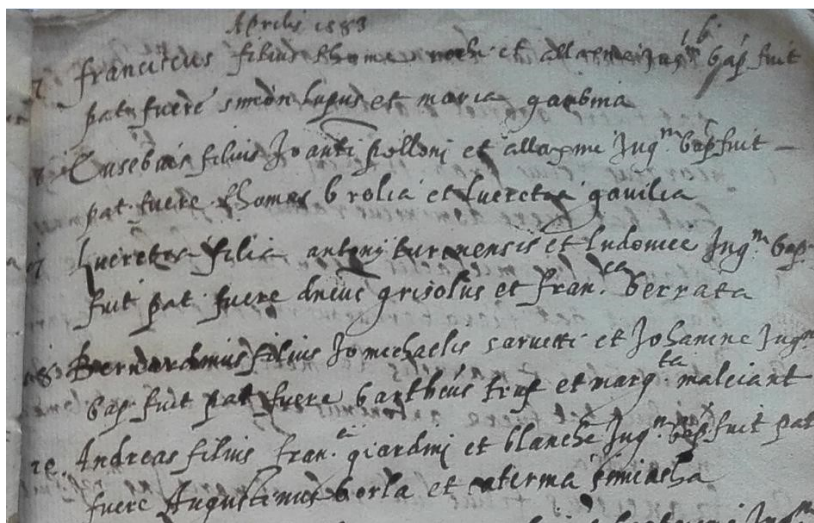 Aprilis 1583
franciscus filius thome et Jug.m bap fuit
pat. fuere simon lupus et maria gaubina
Eusebius filius Joanti pollonj et allaxine Jug.m bap fuit
pat. fuere thomas brolia et lucretia gavilia
Lucretia filia antonij turonensis et ludovice Jug.m bap.
fuit pat. fuere grisolus et fran.ca berrata
Bernardinus filius Jo michaelis saruetti et Johanine Jug.m
bap. fuit pat. fuere bartheus et marg.ta malciant
Andreas filius fran.ci giardinj et blanche Jug.m bap fuit pat
fuere Augustinus borla et caterina